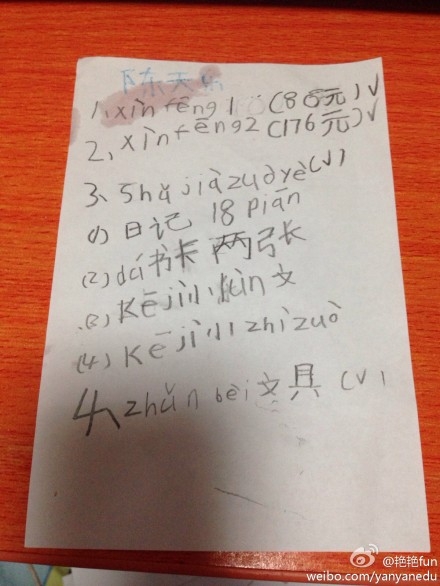 陈天乐
1、xìn fēng 1 (80元)√
2、xìn fēng2 (176元)√
3、Shǔ jià zuò yè(√)
(1) 日记 18 piān
(2) dú书卡 两张
(3) Kē jì小lùn文
(4) Kē jì小zhì zuò
4、zhǔn bèi文具(√)
@艳艳fun
weibo.com/yanyanedu